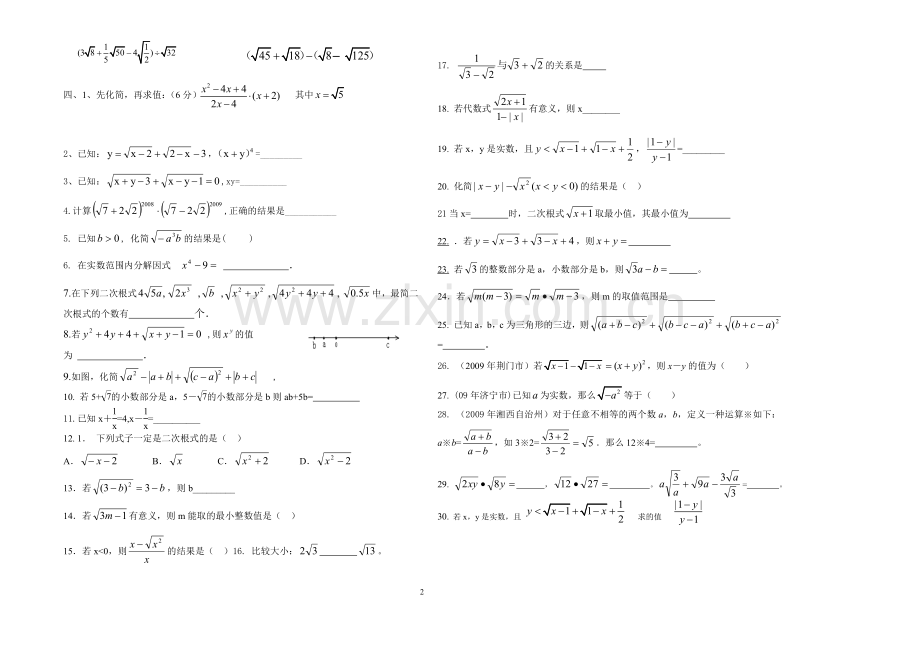 (3√8 + 1/5 √50 − 4√(1/2)) ÷ √32      (√45 + √18) − (√8 − √125)
四、1、先化简，再求值：(6分) (x² − 4x + 4)/(2x − 4) · (x + 2)   其中 x = √5
2、已知：y = √(x−2) + √(2−x) − 3，(x + y)⁴ =_________
3、已知：√(x+y−3) + √(x−y−1) = 0, xy=__________
4.计算(√7 + 2√2)^2008 · (√7 − 2√2)^2009 ,正确的结果是___________
5. 已知 b > 0，化简 √(−a³b) 的结果是(    )
6. 在实数范围内分解因式  x⁴ − 9 = ____________.
7.在下列二次根式 4√(5a), √(2x³), √b, √(x² + y²), √(4y² + 4y + 4), √(0.5x) 中，最简二
次根式的个数有____________个.
8.若 y² + 4y + 4 + √(x + y − 1) = 0 ,则 x^y 的值
为 ____________.
b a o c
9.如图，化简 √(a²) − |a + b| + √((c − a)²) + |b + c|   ,
10. 若5+√7的小数部分是a，5−√7的小数部分是b则ab+5b=_________
11. 已知x＋1/x=4,x－1/x=__________
12. 1． 下列式子一定是二次根式的是（  ）
A．√(−x−2)    B．√x    C．√(x²+2)    D．√(x²−2)
13．若 √((3−b)²) = 3 − b，则b_________
14．若 √(3m−1) 有意义，则m能取的最小整数值是（  ）
15．若x<0，则 (x − √(x²))/x 的结果是（  ）16. 比较大小；2√3 ________√13 。
17. 1/(√3 − √2) 与 √3 + √2 的关系是_____
18. 若代数式 √(2x+1)/(1−|x|) 有意义，则x________
19. 若x，y是实数，且 y < √(x−1) + √(1−x) + 1/2，|1−y|/(y−1)=_________
20. 化简 |x − y| − √(x²) (x < y < 0) 的结果是（  ）
21当x=________时，二次根式 √(x+1) 取最小值，其最小值为_________
22. ．若 y = √(x−3) + √(3−x) + 4，则 x + y = _________
23. 若 √3 的整数部分是a，小数部分是b，则 √3a − b = ______。
24．若 √(m(m−3)) = √m • √(m−3)，则m的取值范围是_________
25. 已知a，b，c为三角形的三边，则 √((a+b−c)²) + √((b−c−a)²) + √((b+c−a)²)
=_________。
26. （2009年荆门市）若 √(x−1) − √(1−x) = (x + y)²，则x－y的值为（    ）
27. (09年济宁市) 已知 a 为实数，那么 √(−a²) 等于（    ）
28. （2009年湘西自治州）对于任意不相等的两个数a，b，定义一种运算※如下：
a※b= √(a+b)/(a−b)，如3※2= √(3+2)/(3−2) = √5．那么12※4=_________。
29. √(2xy) • √(8y) =______，√12 • √27 =_________。a√(3/a) + √(9a) − 3√a/√3 =_______。
30. 若x，y是实数，且 y < √(x−1) + √(1−x) + 1/2   求的值   |1−y|/(y−1)
www.zixin.com.cn
2